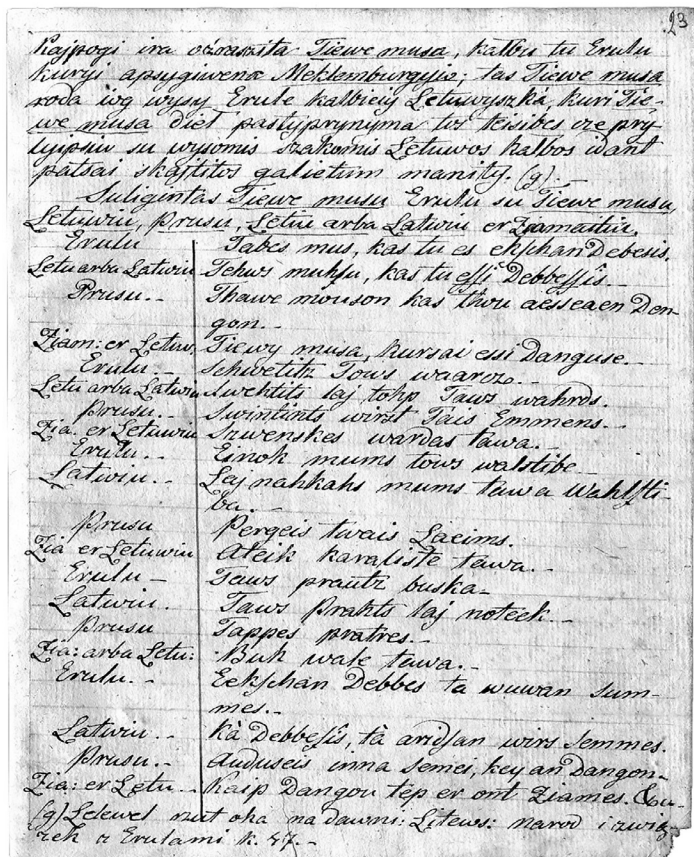 23
Kajpogi ira oźraszita Tiewe musa, kalbu tu Erulu
kuryi apsygiwena Meklemburgyio; tas Tiewe musa
roda iog wysy Erule kalbieiy Letuwyszka, kuri Tie-
we musa diel pastyprynyma tos teisibes cze pry
lyginsiu su wysomis szakomis Letuwos kalbos idant
patsai skajtitos galietum manity. (g) -
Suligintas Tiewe musu Erulu su Tiewe musu
Letuwiu, Prusu, Letu arba Latwiu er Ziamaitiu.
Erulu Tabes mus, kas tu es ekschan Debesis.
Letu arba Latwiu Tehws muhsu, kas tu essi Debbessis.
Prusu. - Thawe mouson kas thou aesseaen Den-
gon. -
Ziam: er Letuw. Tiewy musa, kursai essi Danguse. -
Erulu. - Schwetitz Tows waarcz. -
Letu arba Latwiu Swehtits laj tohp Taws wahrds.
Prusu. - Swintints wirst Tais Emmens. -
Zia. er Letuwiu Szwenskes wardas tawa. -
Erulu. - Enok mums tows walstibe. -
Latwiu. - Ley nahkahs mums tawa Wahlsti-
ba. -
Prusu Pergeis twais Laeims.
Zia er Letuwiu Ateik karaliste tawa. -
Erulu - Taws prautz buska -
Latwiu. Taws Prahts laj noteek. -
Prusu Tappes pratres. -
Zia: arba Letu: Buk wale tawa. -
Erulu. - Eekschan Debbes ta wuwan sum-
mes. -
Latwiu. - Kà Debbesîs, tà aridsan wirs Semmes.
Prusu. - Auduseis inna semes, key an Dangon -
Zia: er Letu. - Kaip Dangou tep er ont Ziames.
(g) Lelewel rzut oka na dawni: Litews: narod i zwią
zek z Erulami k. 47. -